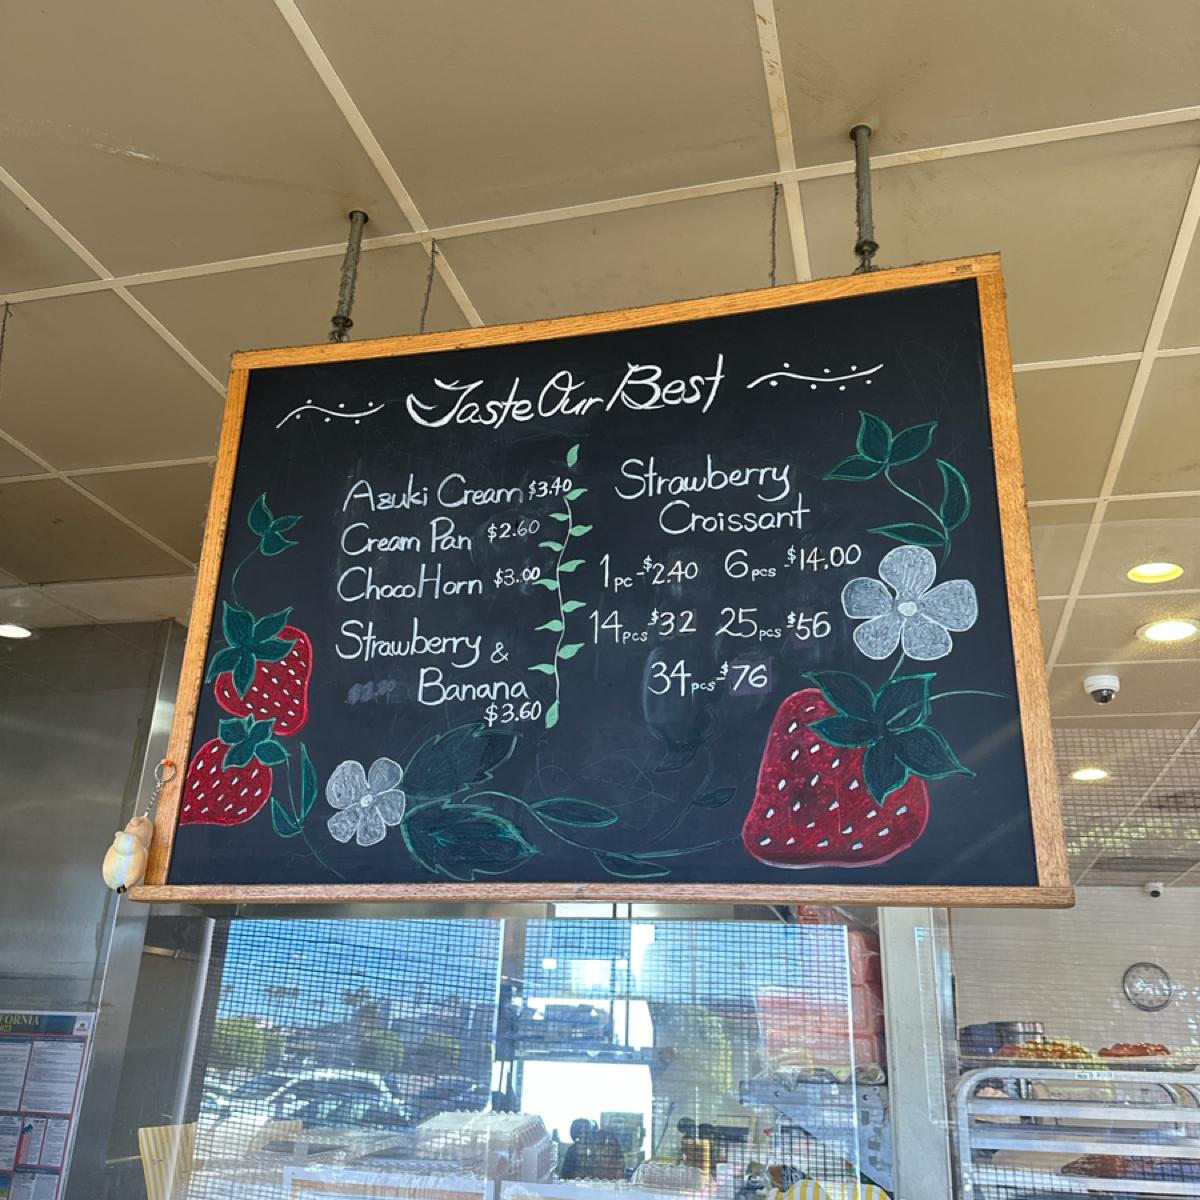 Taste Our Best
Azuki Cream $3.40
Cream Pan $2.60
Choco Horn $3.00
Strawberry &
Banana
$3.60
Strawberry
Croissant
1pc-$2.40 6pcs-$14.00
14pcs$32 25pcs-$56
34pcs-$76